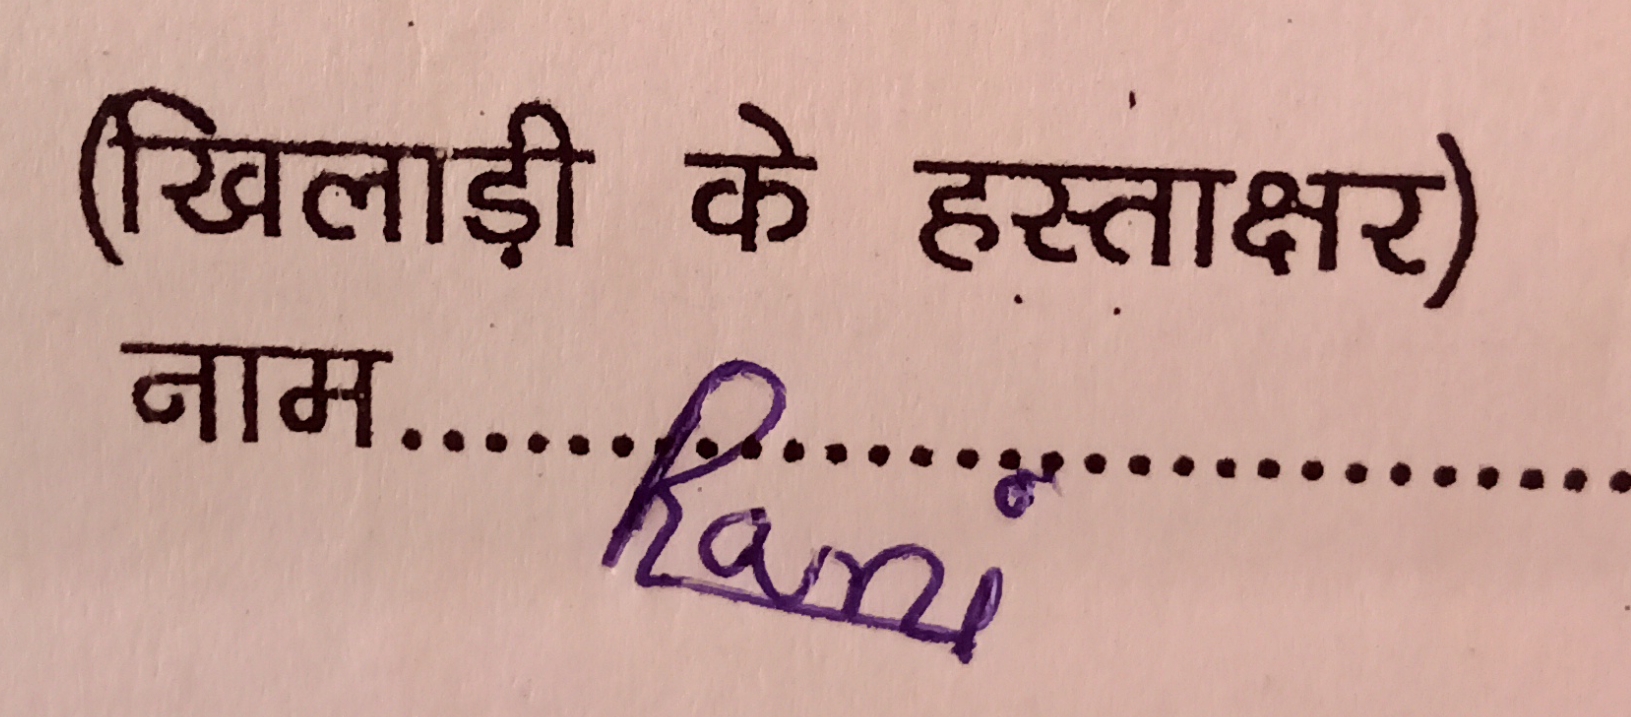 (खिलाड़ी के हस्ताक्षर)
नाम.............................
Rani